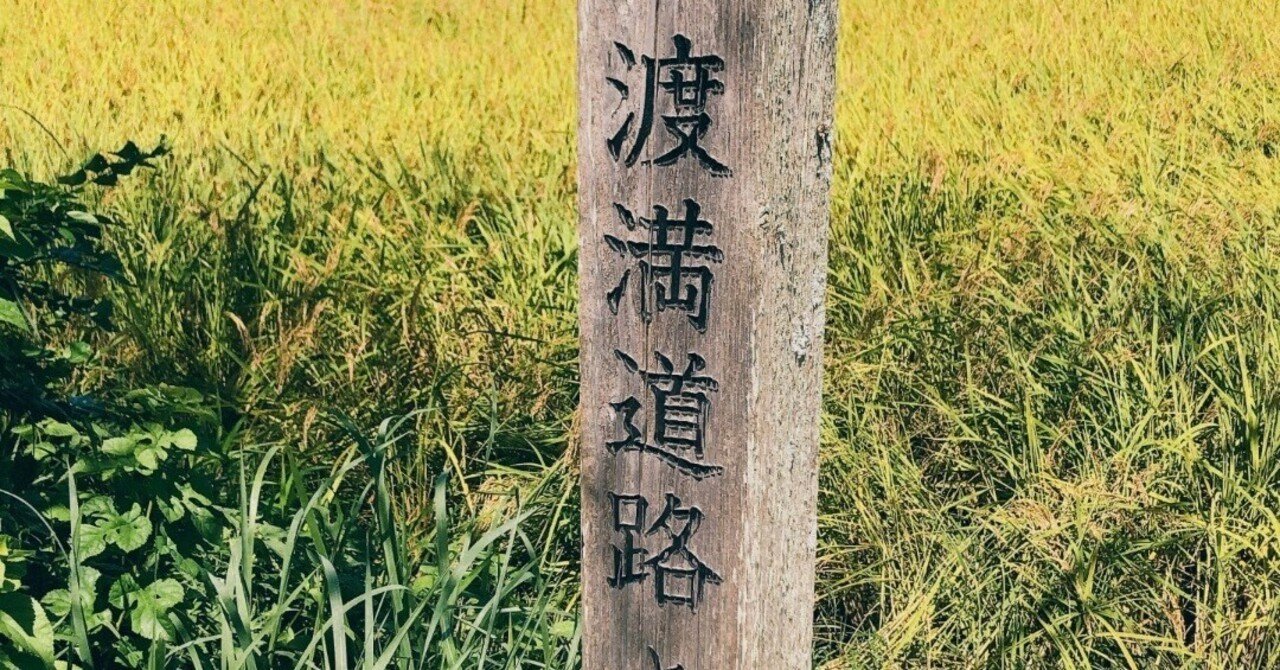 渡満道路